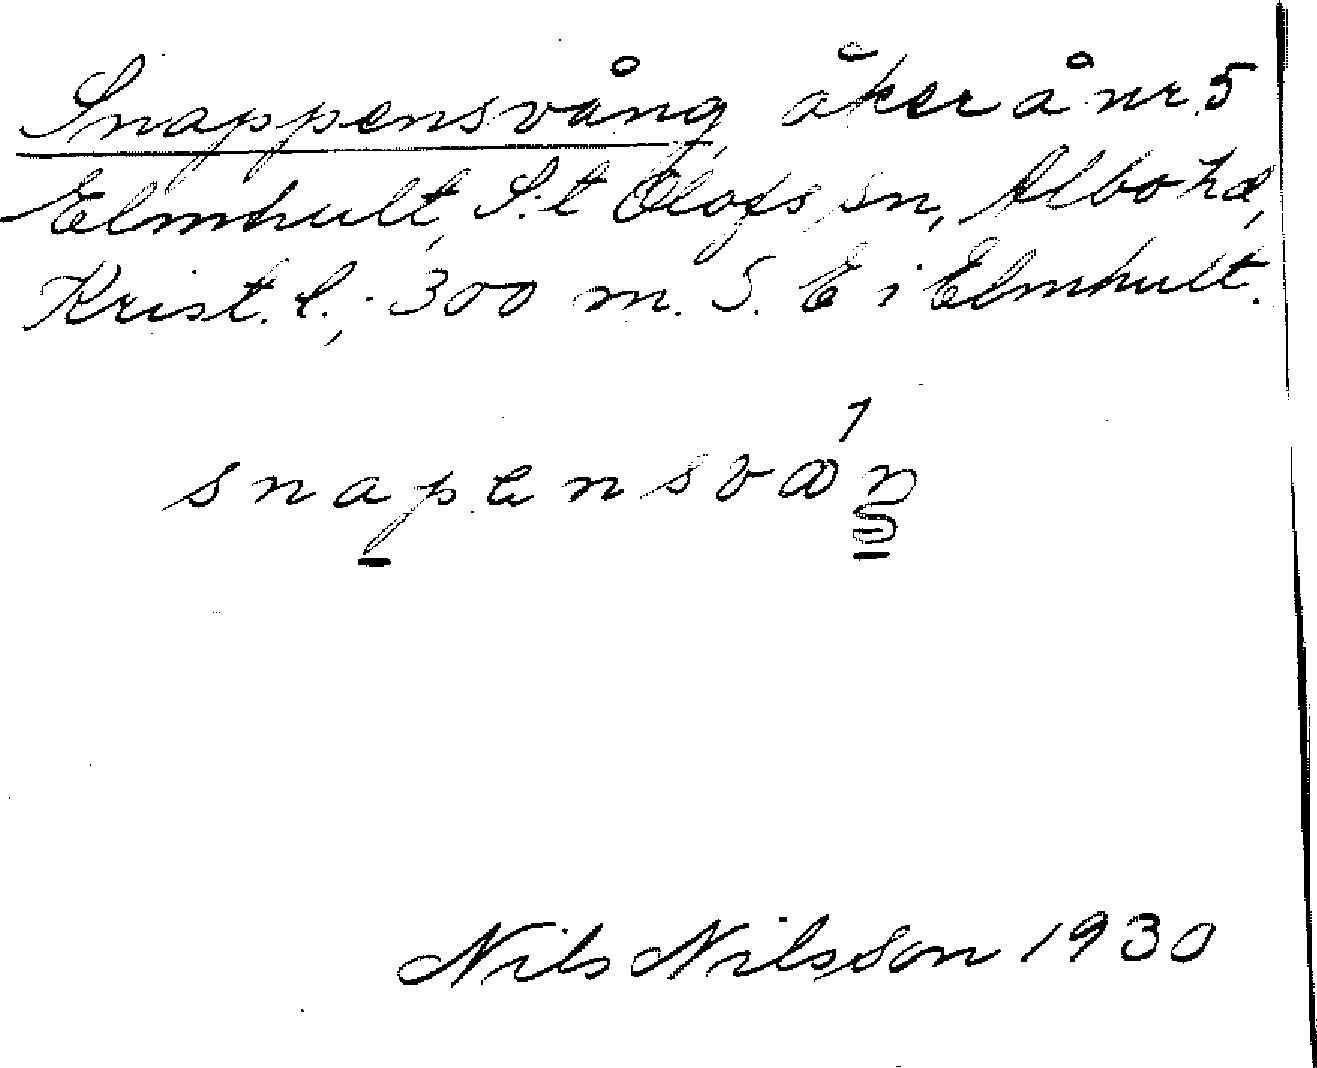 Snappensvång åker å nr 5
Elmhult, S:t Olofs sn, Albo hd,
Krist. l.; 300 m. S. E i Elmhult.
snapensvåŋ
Nils Nilsson 1930